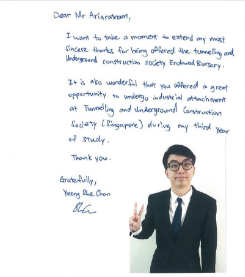 Dear Mr Ariaratnam,
I want to take a moment to extend my most
sincere thanks for being offered the tunneling and
Underground construction society Endowed Bursary.
It is also wonderful that you offered a great
opportunity to undergo industrial attachment
at Tunneling and Underground Construction
Society (Singapore) during my third year
of study.
Thank you.
Gratefully,
Yeong Chan